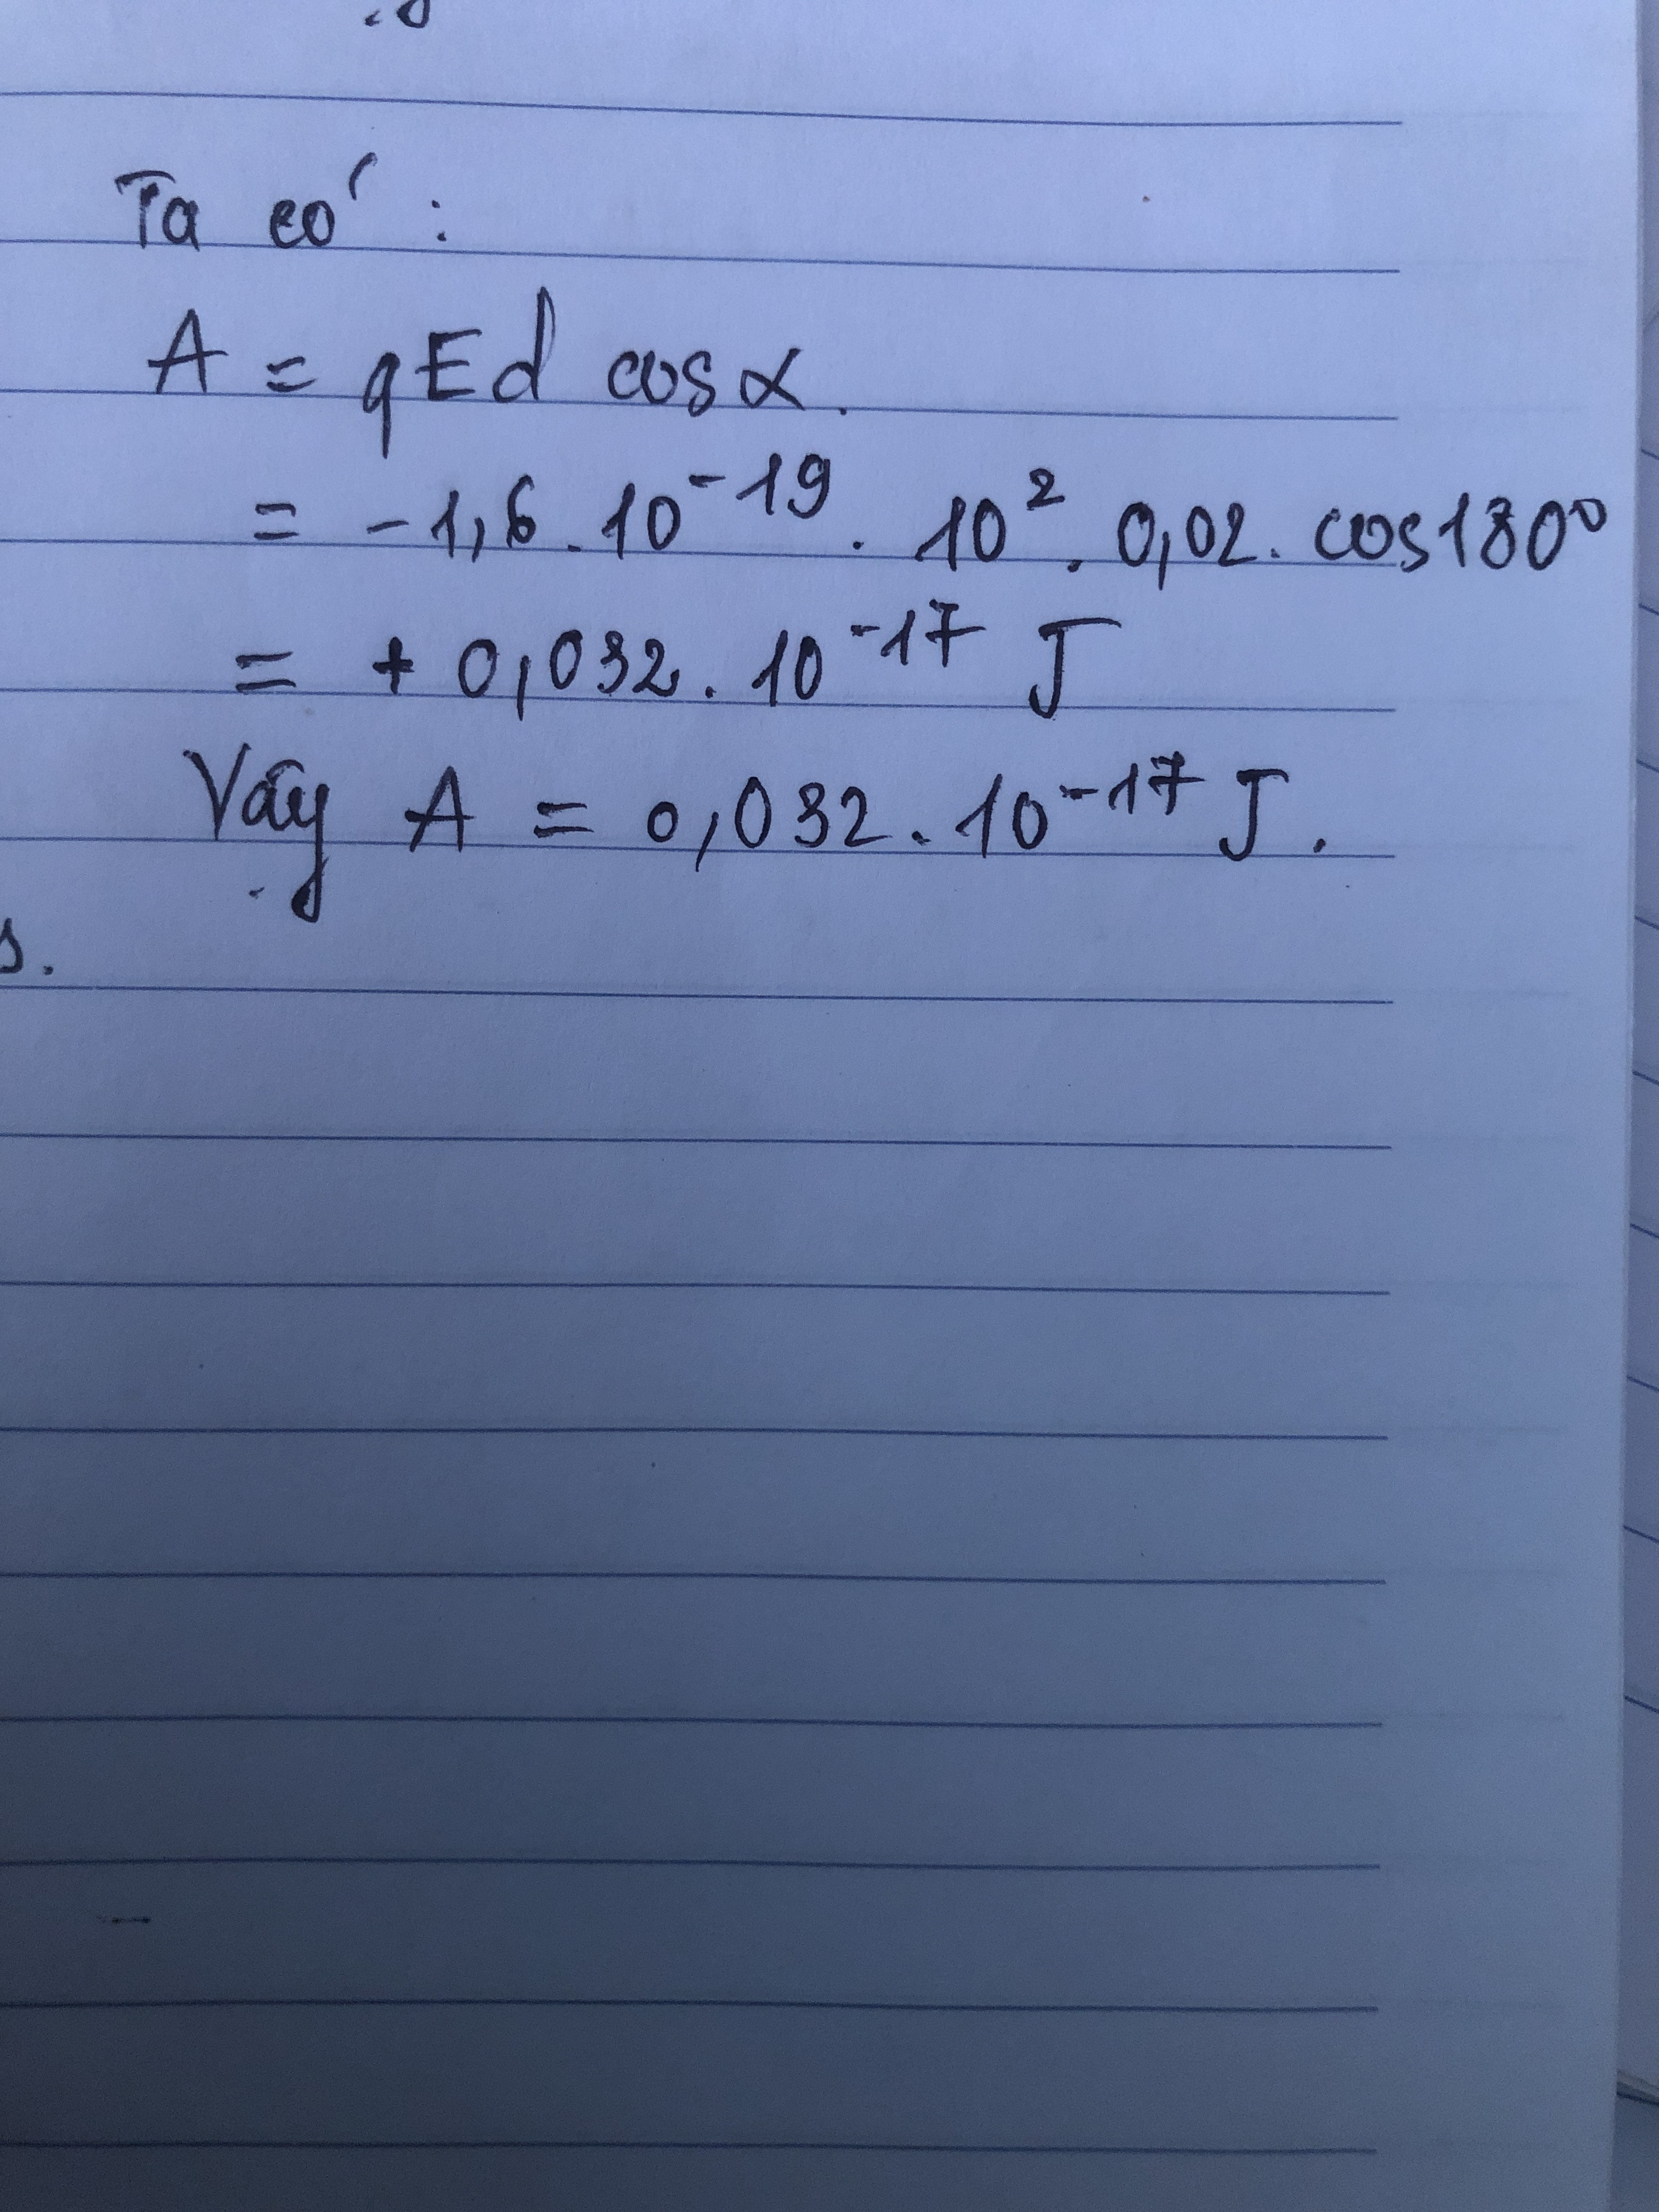 Ta có :
A = qEd cos α.
= -1,6 . 10⁻¹⁹ . 10² . 0,02 . cos180⁰
= + 0,032 . 10⁻¹⁷ J
Vậy A = 0,032 . 10⁻¹⁷ J .
s.